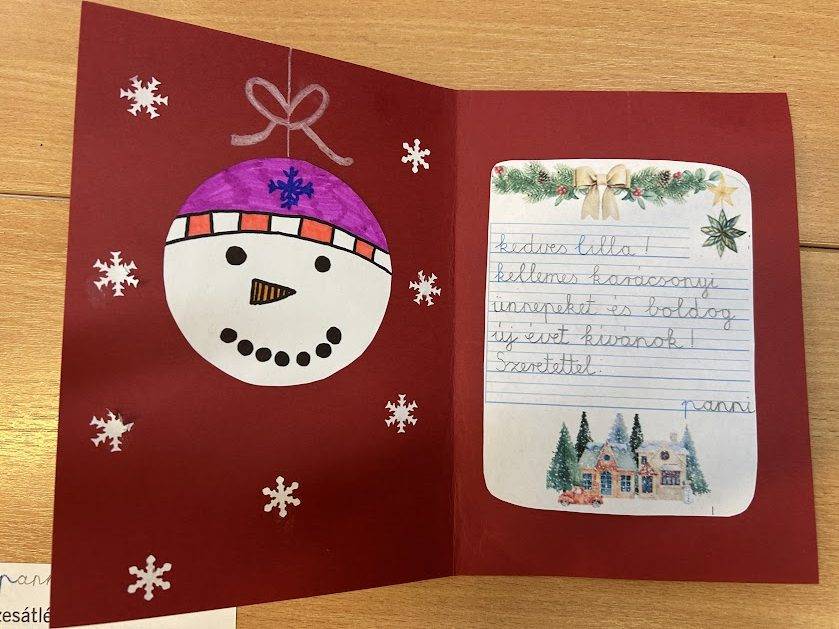 kedves lilla!
kellemes karácsonyi
ünnepeket és boldog
új évet kívánok!
Szeretettel.
panni